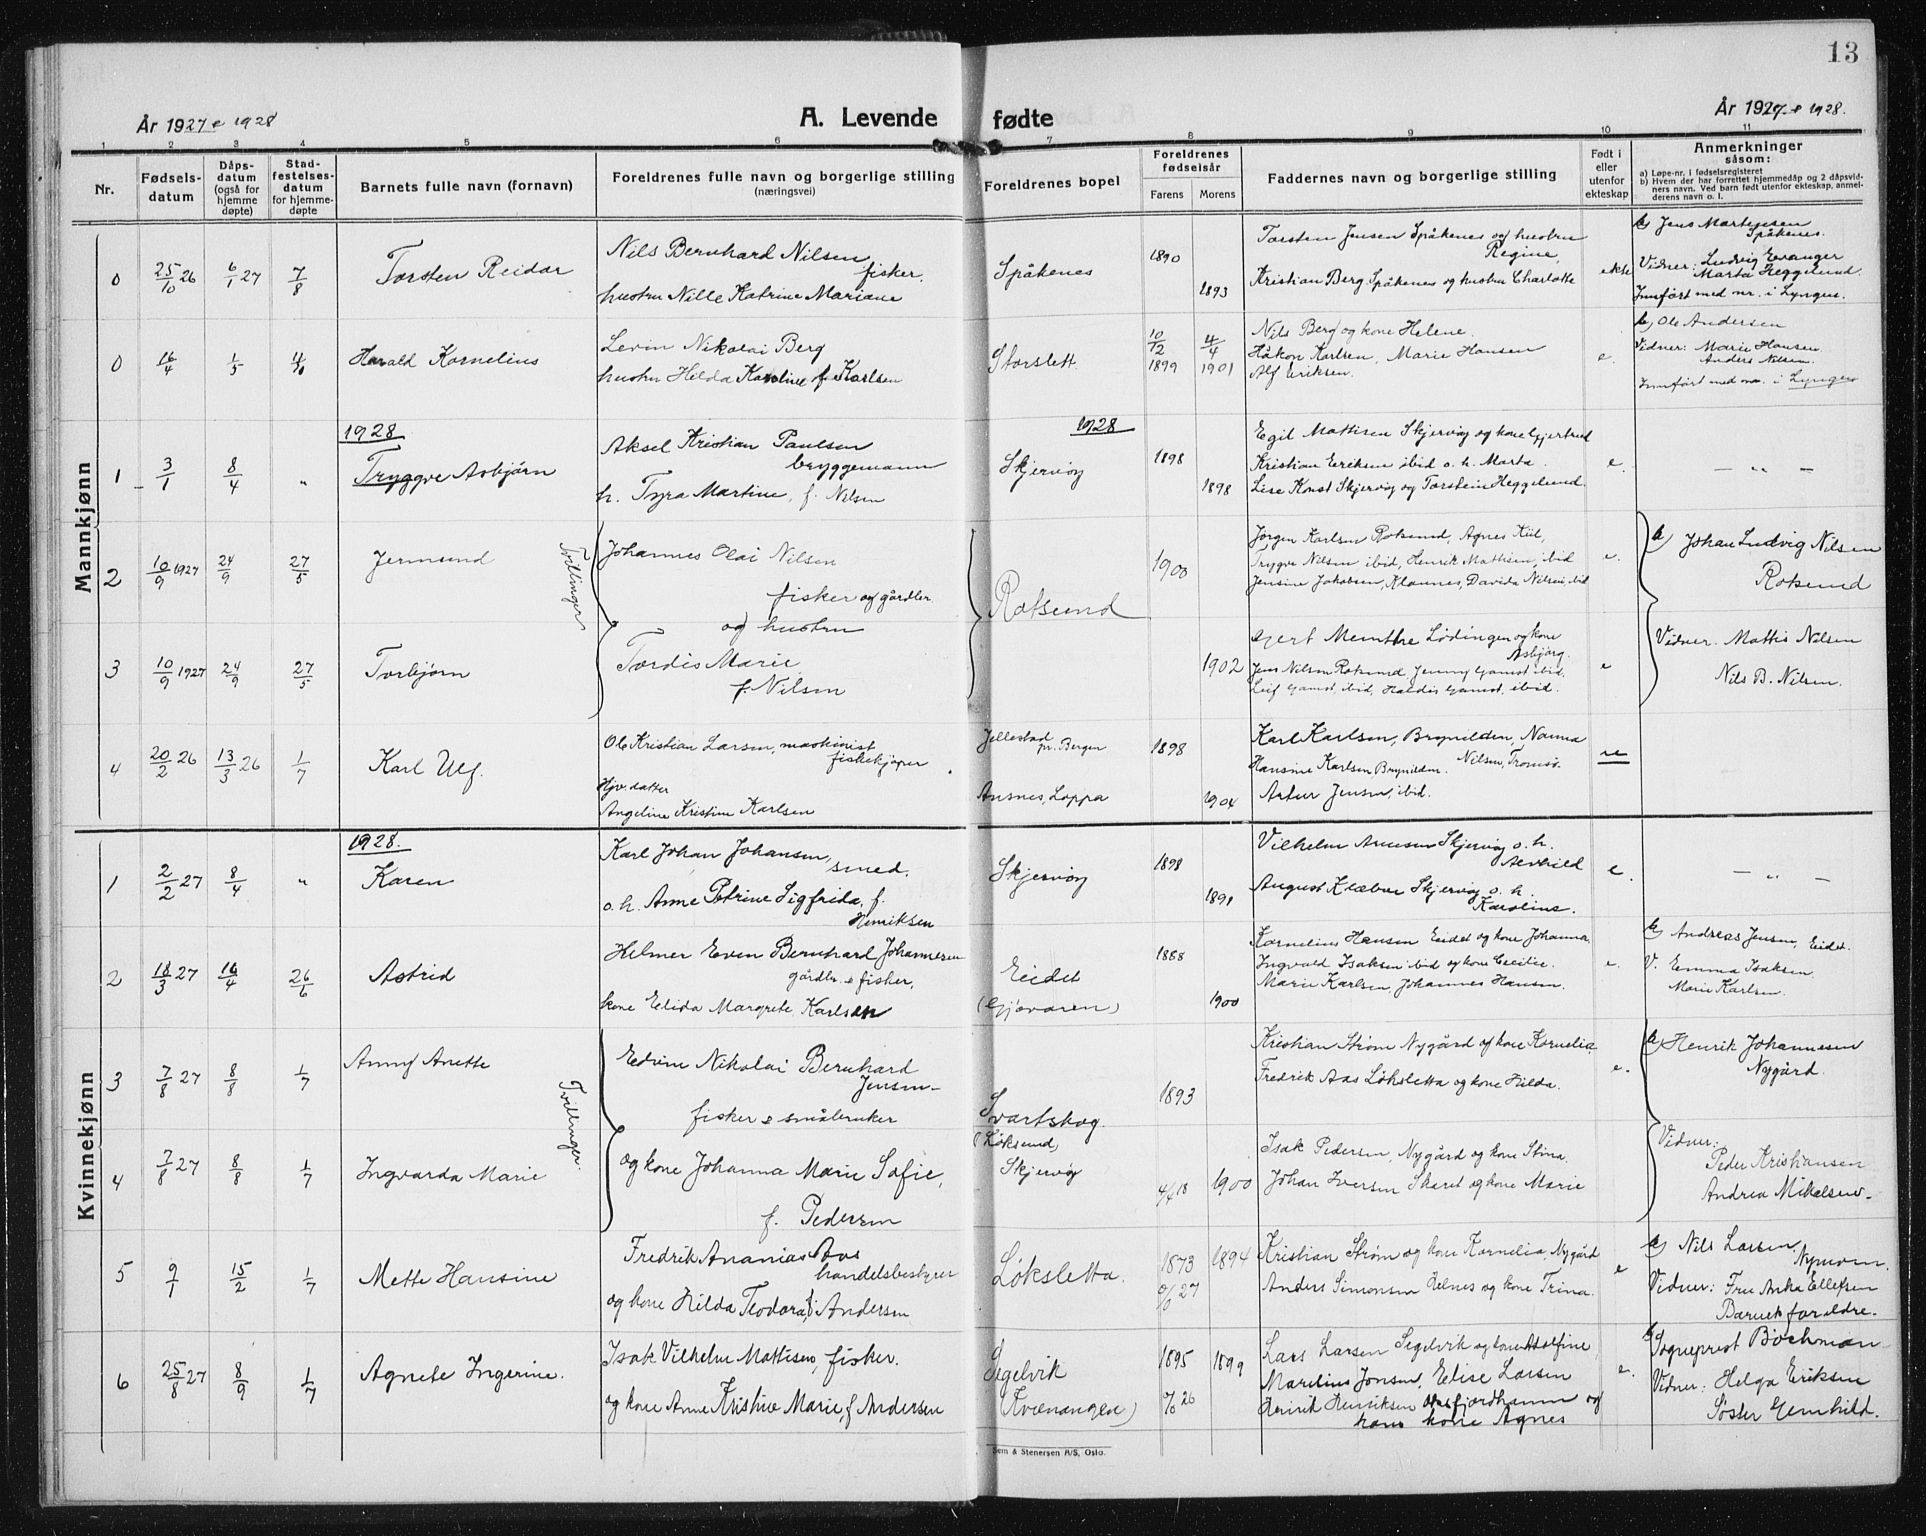 13
År 1927 e 1928
A. Levende fødte
År 1927 e 1928.
1 2 3 4 5 6 7 8 9 10 11
Nr.
Fødsels-
datum
Dåps-
datum
(også for
hjemme
døpte)
Stad-
festelses-
datum
for hjemme-
døpte
Barnets fulle navn (fornavn)
Foreldrenes fulle navn og borgerlige stilling
(næringsvei)
Foreldrenes bopel
Foreldrenes
fødselsår
Farens Morens
Faddernes navn og borgerlige stilling
Født i
eller
utenfor
ekteskap
Anmerkninger
såsom:
a) Løpe-nr. i fødselsregisteret
b) Hvem der har forrettet hjemmedåp og 2 dåpsvid-
ners navn. Ved barn født utenfor ekteskap, anmel-
derens navn o. l.
Mannkjønn
0 25/10 26 6/1 27 7/8 Torsten Reidar
Nils Bernhard Nilsen
fisker.
hustru Nille Katrine Mariane
Spåkenes
1890 1893
Torsten Jensen Spåkenes og hustru
Regine,
Kristian Berg Spåkenes og hustru Charlotte
ekte
b) Jens Martinesen
Spåkenes.
Vidner: Ludvig Evanger
Marta Heggelund.
Innført med nr. i Lyngen
0 16/4 1/5 4/10 Harald Kornelius
Levin Nikolai Berg
hustru Hilda Karoline f. Karlsen
Storslett
10/12 1899 4/4 1901
Nils Berg og kone Helene.
Håkon Karlsen, Marie Hansen
Alf Eriksen.
e.
b) Ole Andersen
Vidner: Marie Hansen.
Anders Nilsen.
Innført med nr. i Lyngen
1928
1 3/1 8/4 " Tryggve Asbjørn
Aksel Kristian Paulsen
bryggemann
h. Tyra Martine, f. Nilsen
1928
Skjervøy
1898 1898
Egil Mattisen Skjervøy og kone Gjertrud
Kristian Eriksen ibid o. h. Marta.
Lise Konst Skjervøy og Torstein Heggelund.
e.
— " —
2 10/9 1927 24/9 27/5 Jermund
Tvillinger
Johannes Olai Nilsen
fisker og gårdbr.
og hustru
Rotsund
1900
Jørgen Karlsen Rotsund, Agnes Kiil,
Trygve Nilsen ibid, Henrik Mathisen, ibid
Jensine Jakobsen, Klaunes, Davida Nilsen, ibid
e.
b) Johan Ludvig Nilsen
Rotsund
3 10/9 1927 24/9 27/5 Torbjørn
Tordis Marie
f. Nilsen
1902
Gert Menthe Lødingen og kone
Asbjørg.
Jens Nilsen Rotsund, Jenny Gamst ibid.
Leif Gamst, ibid, Haldis Gamst, ibid.
e
Vidner. Mattis Nilsen
Nils B. Nilsen.
4 20/2 26 13/3 26 1/7 Karl Ulf.
Ole Kristian Larsen, maskinist
fiskekjøper
Hjv. datter
Angeline Kristine Karlsen
Jellestad
pr. Bergen
Ansnes, Loppa
1898 1904
Karl Karlsen, Brynilden, Nanna
Nilsen, Tromsø.
Hansine Karlsen Brynilden.
Artur Jensen, ibid.
ue
Kvinnekjønn
1928.
1 2/2 27 8/4 " Karen
Karl Johan Johansen,
smed.
o. h. Anne Petrine Sigfrida, f.
Henriksen
Skjervøy
1898 1891
Vilhelm Arnesen Skjervøy o. h.
Alvhild
August Klæboe Skjervøy o. h.
Karoline.
e.
— " —
2 18/3 27 16/4 26/6 Astrid
Helmer Even Bernhard Johannesen
gårdbr. e fisker,
kone Elida Margrete Karlsen
Eidet
(Gjøvaren)
1888 1900
Kornelius Hansen Eidet og kone Johanna.
Ingvald Isaksen ibid og kone Cecilie.
Marie Karlsen, Johannes Hansen.
e.
b) Andreas Jensen, Eidet.
V. Emma Isaksen.
Marie Karlsen.
3 7/8 27 8/8 1/7 Anny Anette
Tvillinger
Edvine Nikolai Bernhard
Jensen
fisker e småbruker
Svartskog.
(Løksund,
Skjervøy
1893
Kristian Strøm Nygård og kone Kornelia.
Fredrik Aas Løksletta og kone Hilda.
e.
b) Henrik Johannesen
Nygård.
4 7/8 27 8/8 1/7 Ingvarda Marie
og kone Johanna Marie Sofie,
f. Pedersen
4/4 18 1900
Isak Pedersen, Nygård og kone Stina
Johan Iversen Skaret og kone Marie
Vidner:
Peder Kristiansen
Andrea Mikelsen.
5 9/1 15/2 1/7 Mette Hansine
Fredrik Ananias Aas
handelsbestyrer
og kone Hilda Teodora, f. Andersen
Løksletta.
1873 1894
0/0 27
Kristian Strøm og kone Kornelia, Nygård
Anders Simonsen Helnes og kone Trina.
e
b) Nils Larsen,
Nymoen.
Vidner: Fru Anka Ellefsen
Barnets foreldre.
6 25/8 27 8/9 1/7 Agnete Ingerine.
Isak Vilhelm Mattisen, fisker.
og kone Anne Kristine Marie, f. Andersen
Segelvik
(Kvænangen)
1895 1899
7/0 26
Lars Larsen Segelvik og kone Adolfine
Marelius Jensen, Elise Larsen
Henrik Henriksen Oksfjordhamn og
hans kone Agnes
e.
b) Sogneprest Bochman
Vidner: Helga Eriksen
Søster Gunhild.
Sem & Stenersen A/S, Oslo.